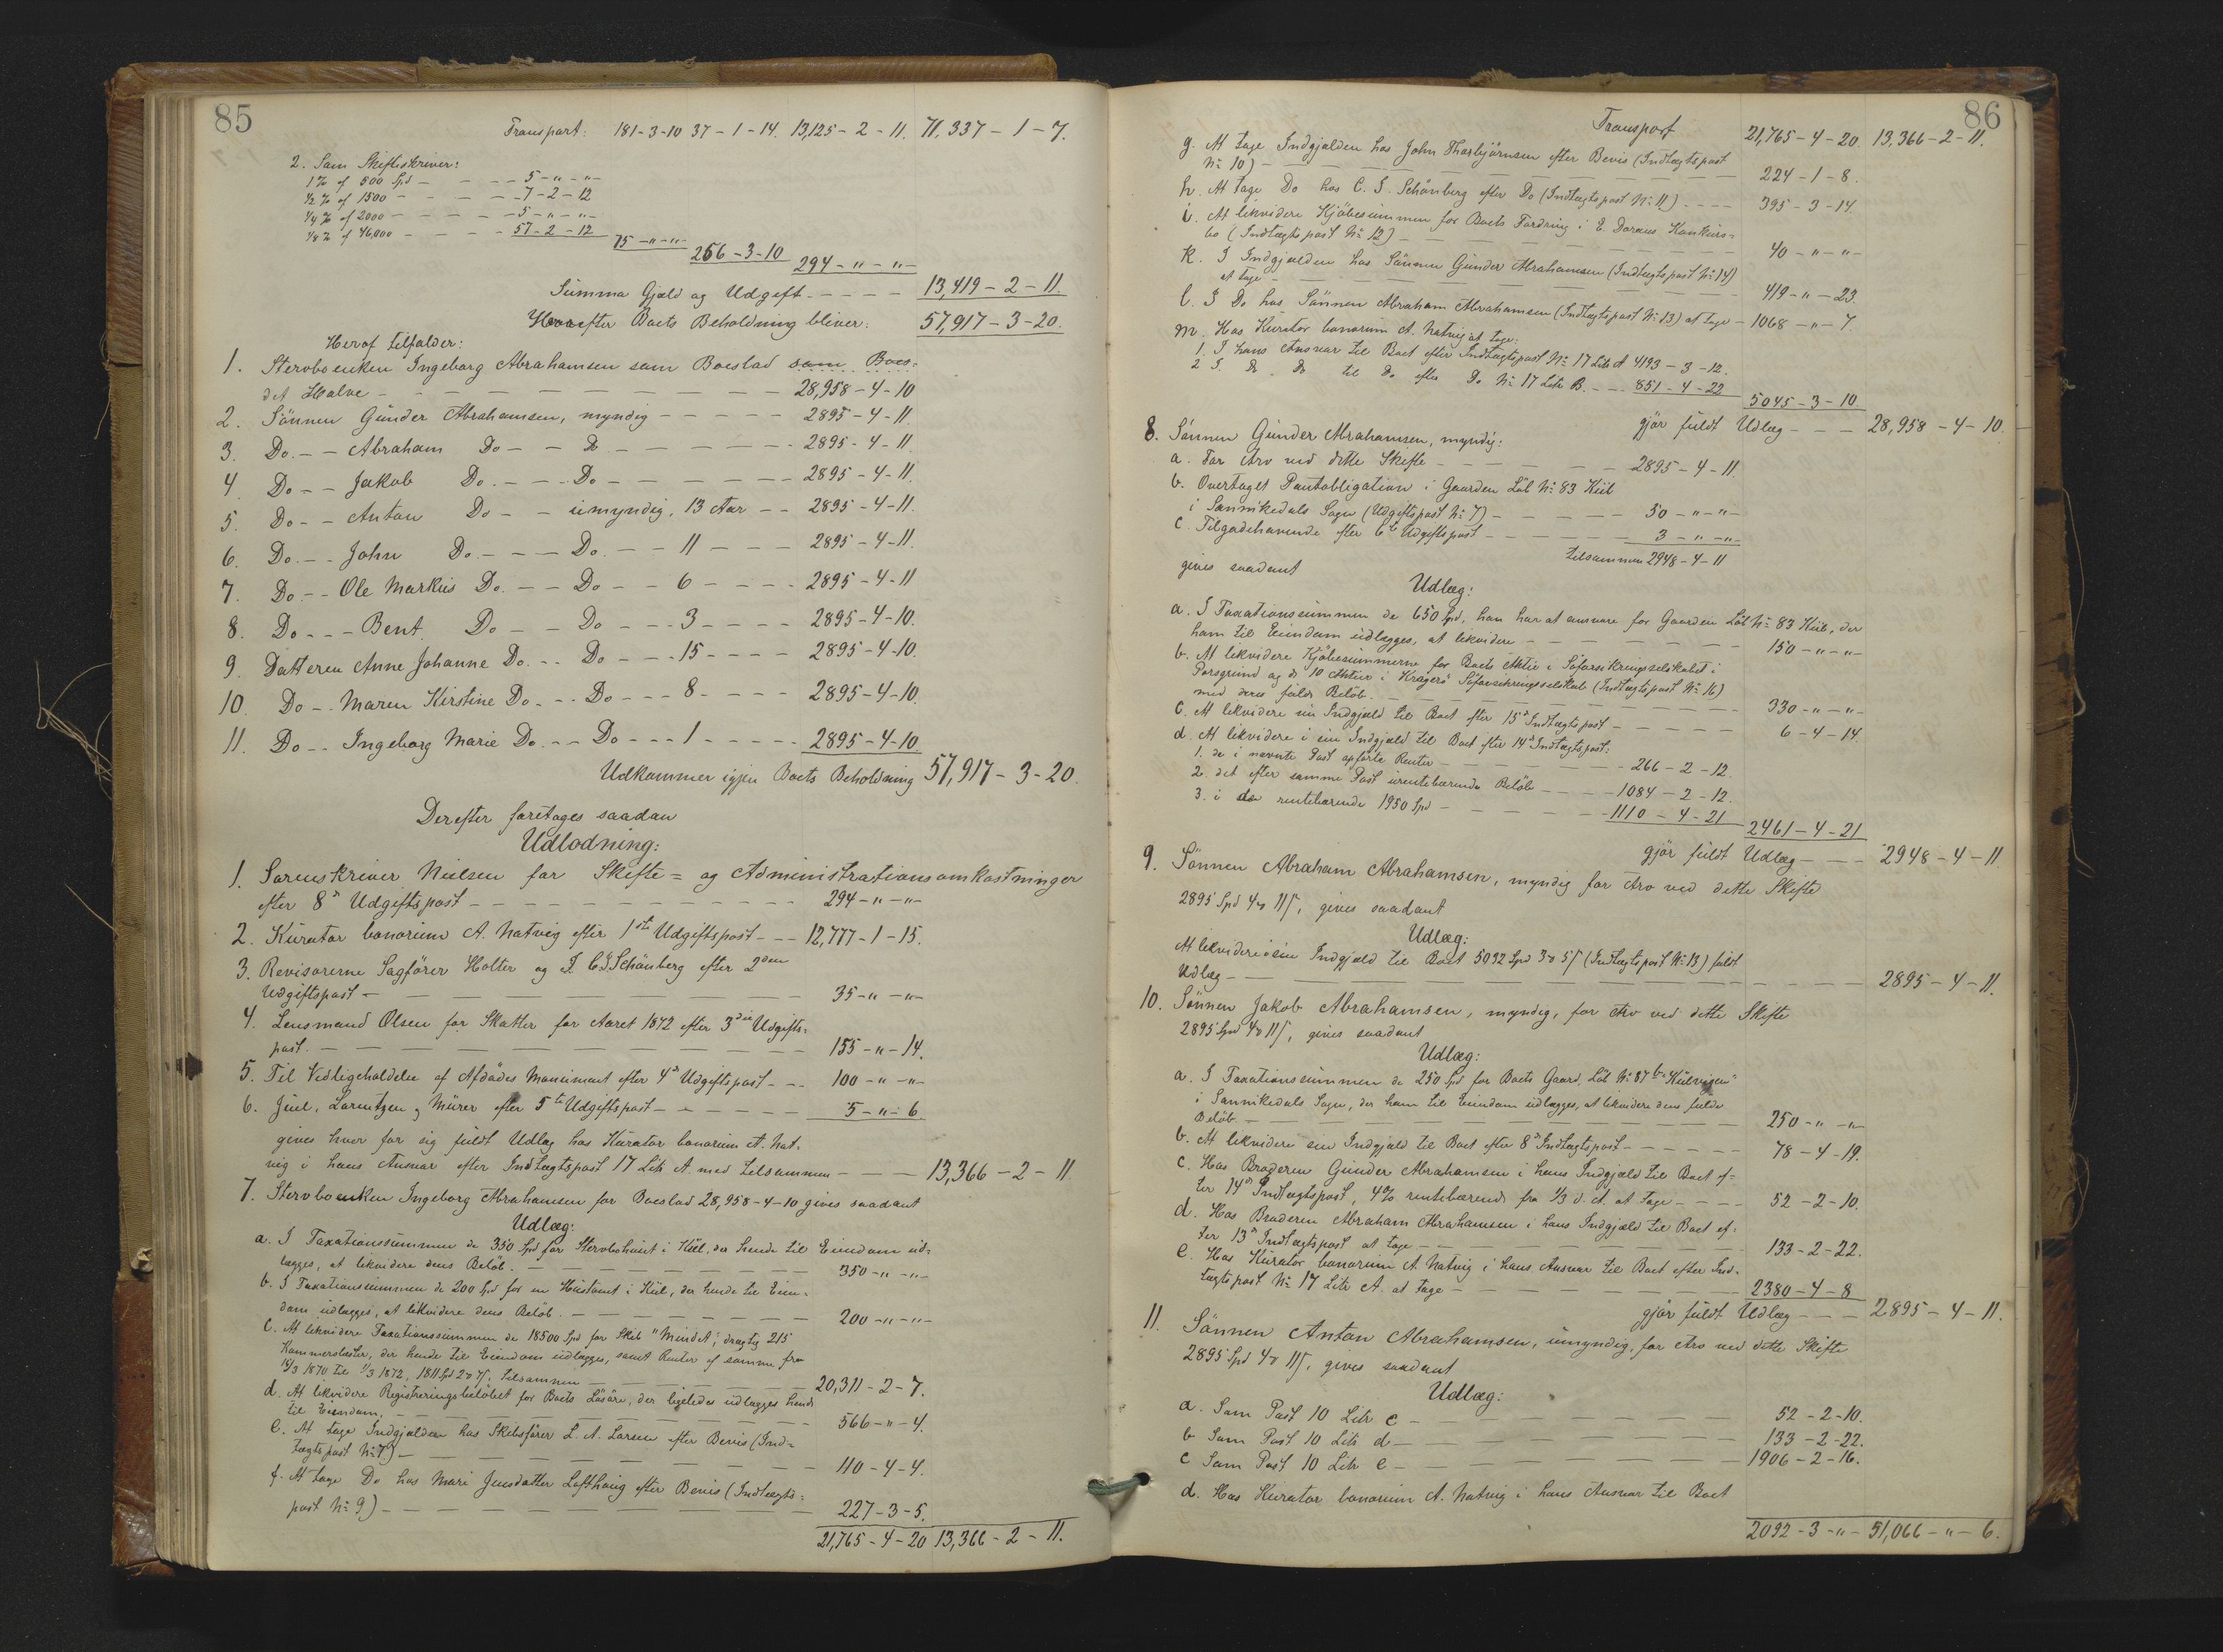 85
Transport: 181-3-10 37-1-14. 13,125-2-11. 71,337-1-7.
2. Som Skifteskriver:
1% af 500 Spd - - - 5-"-"-
1/2 % af 1500 - - - 7-2-12
1/4 % af 2000 - - - 5-"-"-
1/8 % af 46,000 - - - 57-2-12
75-"-"-
256-3-10
294-"-"-
Summa Gjæld og Udgift - - - - 13,419-2-11.
Hvorefter Boets Beholdning bliver: 57,917-3-20.
Heraf tilfalder:
1. Stervboenken Ingeborg Abrahamsen som Boeslod som Boes-
det Halve - - - - 28,958-4-10
2. Sönnen Gunder Abrahamsen, myndig - - - - 2895-4-11.
3. Do. - - Abraham Do - - Do - - - - 2895-4-11.
4. Do - - Jakob Do. - - - Do - - - - 2895-4-11.
5. Do - - Anton Do - - umyndig, 13 Aar - - 2895-4-11.
6. Do. - - John Do. - - - Do. - - 11 - - - 2895-4-11.
7. Do. - - Ole Markus Do. - - Do - - 6 - - - 2895-4-11
8. Do - - - Bent. Do - - Do - - - 3 - - - - 2895-4-10.
9. Datteren Anne Johanne Do. - - Do - - - 15 - - - - 2895-4-10.
10. Do - - Maren Kirstine Do. - - Do - - - 8 - - - - 2895-4-10.
11. Do - - Ingeborg Marie Do. - - Do - - - 1 - - - - 2895-4-10.
Udkommer igjen Boets Beholdning 57,917-3-20.
Derefter foretages saadan
Udlodning:
1. Sorenskriver Nielsen for Skifte= og Administrationsomkostninger
efter 8de Udgiftspost - - - - 294-"-"-
2. Kurator bonorum A. Natvig efter 1ste Udgiftspost - - - 12,777-1-15.
3. Revisorerne Sagfører Holter og J. C. G. Schönberg efter 2den
Udgiftspost - - - - 35-"-"-
4. Lensmand Olsen for Skatter for Aaret 1872 efter 3die Udgifts-
post. - - - - 155-"-14.
5. Til Vedligeholdelse af Afdødes Monument efter 4de Udgiftspost - - - 100-"-"-
6. Juel, Lorentzen og Mürer efter 5te Udgiftspost - - - - 5-"-6.
gives hver for sig fuldt Udlæg hos Kurator bonorum A. Nat-
vig i hans Ansvar efter Indtægtspost 17 Litr A. med tilsammen - - - 13,366-2-11.
7. Stervboenken Ingeborg Abrahamsen for Boeslod 28,958-4-10 gives saadant
Udlæg:
a. I Taxationssummen de 350 Spd for Stervbohuset i Kiil, der hende til Eiendom ud-
lægges, at likvidere dens Beløb. - - - - 350-"-"-
b. I Taxationssummen de 200 Spd for en Hustomt i Kiil, der hende til Eien-
dom udlægges, at likvidere dens Beløb. - - - - 200-"-"-
c. At likvidere Taxationssummen de 18500 Spd for Skib "Mindet", drægtig 215
Kommerselæster, der hende til Eiendom udlægges, samt Renter af samme fra
15/3 1870 til 1/3 1872, 1811 Spd 2 ₰ 7ß. tilsammen - - - - 20,311-2-7.
d. At likvidere Registreringsbeløbet for Boets Løsøre, der ligeledes udlægges hende
til Eiendom. - - - - 566-"-4.
e. At tage Indgjælden hos Skibsfører L. A. Larsen efter Bevis (Ind-
tægtspost No 7) - - - - 110-4-4.
f. At tage Do hos Mari Jensdatter Lofthaug efter Bevis (Indtægts-
post No 9) - - - - 227-3-5.
21,765-4-20 13,366-2-11.
86
Transport 21,765-4-20. 13,366-2-11.
g. At tage Indgjælden hos John Thorbjørnsen efter Bevis (Indtægtspost
No 10) - - - - 224-1-8.
h. At tage Do hos C. G. Schönberg efter Do (Indtægtspost No 11) - - - - 395-3-14.
i. At likvidere Kjøbesummen for Boets Fordring i E. Doraus Konkurs-
bo (Indtægtspost No 12) - - - - 40-"-"-
k. I Indgjælden hos Sønnen Gunder Abrahamsen (Indtægtspost No 14)
at tage - - - - 419-"-23.
l. I Do hos Sønnen Abraham Abrahamsen (Indtægtspost No 13) at tage - 1068-"-7.
m. Hos Kurator bonorum A. Natvig at tage:
1. I hans Ansvar til Boet efter Indtægtspost No 17 Litr A 4193-3-12.
2 I. Do Do til Do efter Do No 17 Litr B. - - - 851-4-22
5045-3-10
gjør fuldt Udlæg - - - 28,958-4-10.
8. Sønnen Gunder Abrahamsen, myndig:
a. For Arv ved dette Skifte - - - - 2895-4-11
b. Overtaget Pantobligation i Gaarden Løb No 83 Kiil
i Sannikedals Sogn (Udgiftspost No 7) - - - - 50-"-"-
c. Tilgodehavende efter 6te Udgiftspost - - - - 3-"-"-
tilsammen 2948-4-11
gives saadant
Udlæg:
a. I Taxationssummen de 650 Spd, han har at ansvare for Gaarden Løb No 83 Kiil, der
ham til Eiendom udlægges, at likvidere - - - - 150-"-"-
b. At likvidere Kjøbesummerne for Boets Aktie i Søforsikringsselskabet i
Porsgrund og do 10 Aktier i Kragerø Søforsikringsselskab (Indtægtspost No 16)
med deres fulde Beløb. - - - - 330-"-"-
c. At likvidere sin Indgjæld til Boet efter 15de Indtægtspost - - - - 6-4-14.
d. At likvidere i sin Indgjæld til Boet efter 14de Indtægtspost:
1. de i nævnte Post opførte Renter - - - - 266-2-12.
2. det efter samme Post urentebærende Beløb - - - - 1084-2-12.
3. i de rentebærende 1950 Spd - - - - 1110-4-21
2461-4-21
gjør fuldt Udlæg - - - 2948-4-11
9. Sønnen Abraham Abrahamsen, myndig for Arv ved dette Skifte
2895 Spd 4 ₰ 11ß, gives saadant
Udlæg:
At likvidere i sin Indgjæld til Boet 5092 Spd 3 ₰ 5ß (Indtægtspost No 13) fuldt
Udlæg - - - - 2895-4-11.
10. Sønnen Jakob Abrahamsen, myndig, for Arv ved dette Skifte
2895 Spd 4 ₰ 11ß, gives saadant
Udlæg:
a. I Taxationssummen de 250 Spd for Boets Gaard, Løb No 87 b "Kiilvigen"
i Sannikedals Sogn, der ham til Eiendom udlægges, at likvidere dens fulde
Beløb. - - - - 250-"-"-
b. At likvidere sin Indgjæld til Boet efter 8de Indtægtspost - - - - 78-4-19.
c. Hos Broderen Gunder Abrahamsen i hans Indgjæld til Boet ef-
ter 14de Indtægtspost, 4% rentebærende fra 1/3 d. A. at tage - - - - 52-2-10.
d. Hos Broderen Abraham Abrahamsen i hans Indgjæld til Boet ef-
ter 13de Indtægtspost at tage - - - - 133-2-22.
e. Hos Kurator bonorum A. Natvig i hans Ansvar til Boet efter Ind-
tægtspost No 17 Litr A. at tage - - - - 2380-4-8
gjør fuldt Udlæg - - - 2895-4-11.
11. Sønnen Anton Abrahamsen, umyndig, for Arv ved dette Skifte
2895 Spd 4 ₰ 11ß, gives saadant
Udlæg:
a. Som Post 10 Litr c - - - - 52-2-10.
b Som Post 10 Litr d - - - - 133-2-22.
c Som Post 10 Litr e - - - - 1906-2-16.
d. Hos Kurator bonorum A. Natvig i hans Ansvar til Boet
2092-3-"- 51,066-"-6.